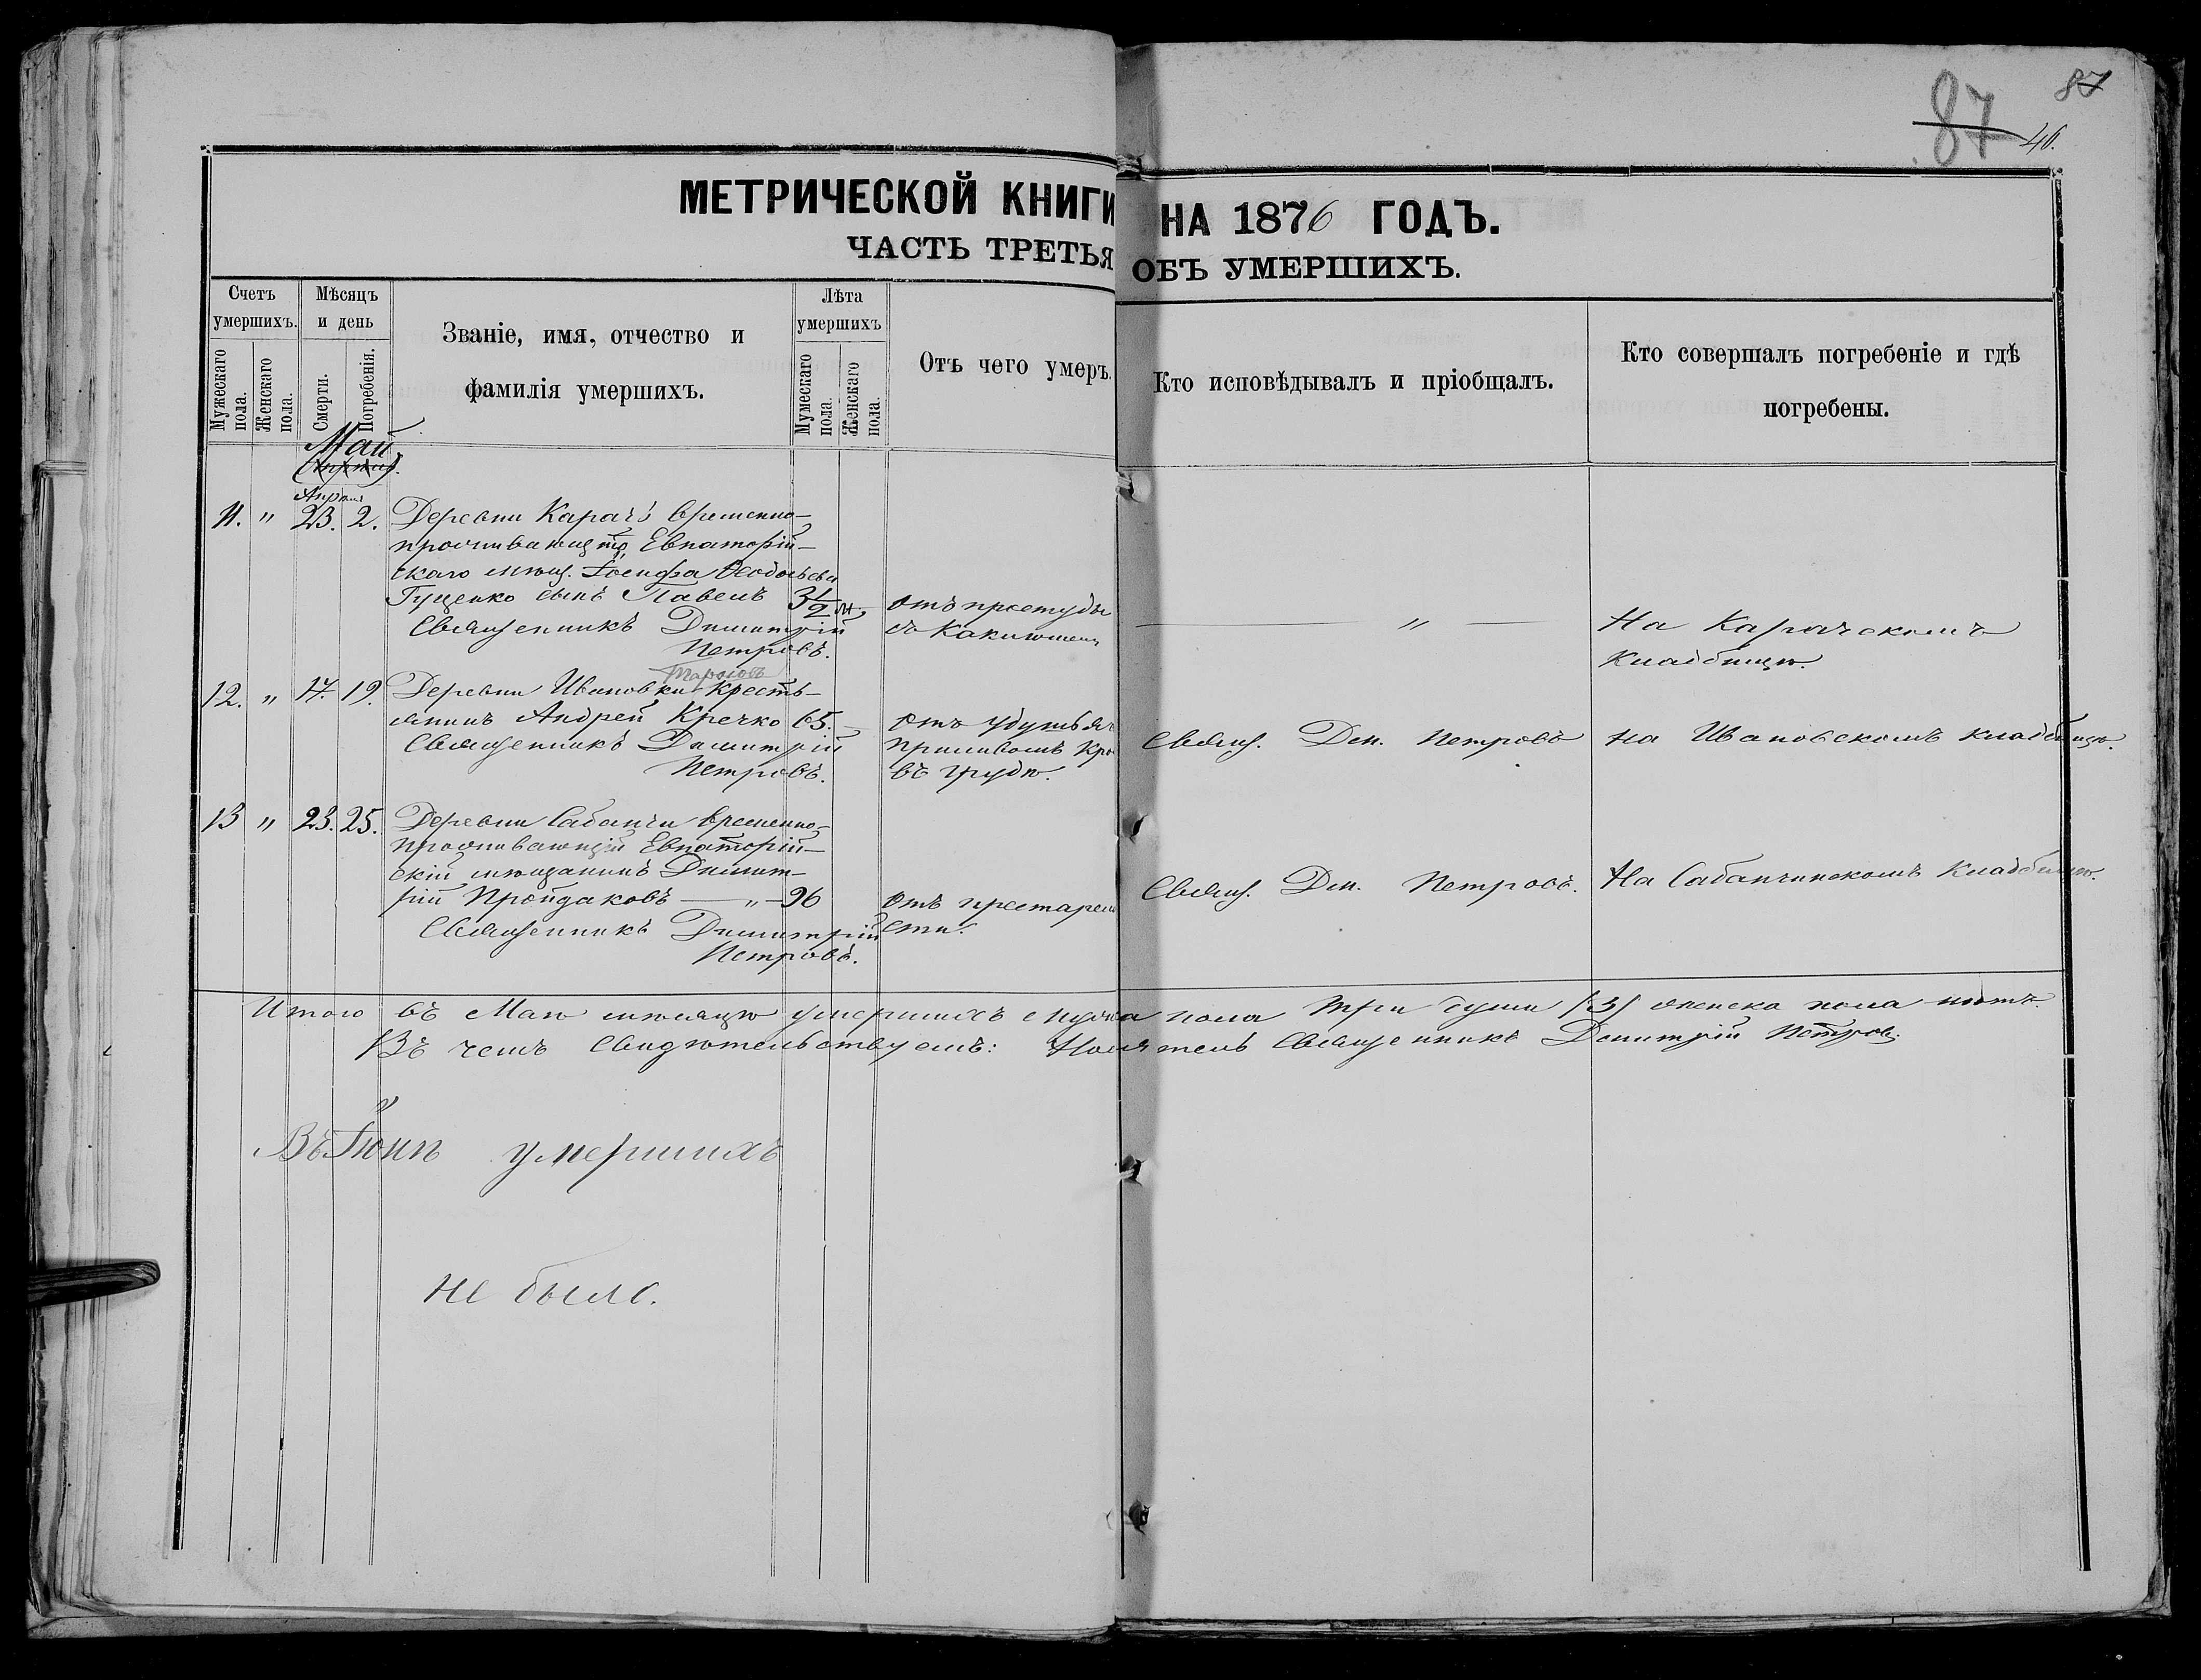 87
87
46.
МЕТРИЧЕСКОЙ КНИГИ НА 1876 ГОДЪ.
ЧАСТЬ ТРЕТЬЯ ОБЪ УМЕРШИХЪ.
Счетъ умершихъ.
Мужескаго пола.
Женскаго пола.
Мѣсяцъ и день
Смерти.
Погребенія.
Званіе, имя, отчество и
фамилія умершихъ.
Лѣта умершихъ
Мужескаго пола.
Женскаго пола.
Отъ чего умеръ.
Кто исповѣдывалъ и пріобщалъ.
Кто совершалъ погребеніе и гдѣ
погребены.
Май
Апрѣля
11. " 23. 2. Деревни Карачъ временно-
проживающаго Евпаторій-
скаго мѣщ. Іосифа Ѳеодосьева
Гуценко сынъ Павелъ 3 1/2 м. отъ простуды
Священникъ Димитрій
Петровъ.
съ Каклюшемъ
"
На Карачскомъ
Кладбищѣ.
12. " 17. 19. Деревни Ивановки Кресть-
янинъ Андрей Кречко 65. отъ удушья
Священникъ Димитрій
Петровъ.
приливомъ кро
въ грудѣ.
Свящ. Дим. Петровъ
на Ивановскомъ кладбищѣ.
13 " 23. 25. Деревни Сабанчи временно-
проживающій Евпаторій-
скій мѣщанинъ Димит-
рій Пройдаковъ — " — 96 отъ престарело
сти.
Священникъ Димитрій
Петровъ.
Свящ. Дим. Петровъ.
На Сабанчинскомъ Кладбищѣ.
Итого въ Маѣ мѣсяцѣ умершихъ мужска пола три души /3/ женска пола нѣтъ.
Въ чемъ свидѣтельствуемъ: Священникъ Димитрій Петровъ.
Въ Іюнѣ умершихъ
не было.